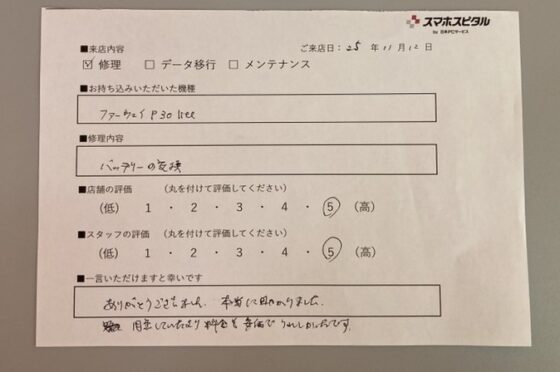 スマホスピタル
by 日本PCサービス
■来店内容
ご来店日:25年11月12日
☑ 修理 □ データ移行 □ メンテナンス
■お持ち込みいただいた機種
ファーウェイP30 lite
■修理内容
バッテリーの交換
■店舗の評価 (丸を付けて評価してください)
(低) 1 ・ 2 ・ 3 ・ 4 ・ 5 (高)
■スタッフの評価 (丸を付けて評価してください)
(低) 1 ・ 2 ・ 3 ・ 4 ・ 5 (高)
■一言いただけますと幸いです
ありがとうございました。本当に助かりました。
料金も安価でうれしかったです。